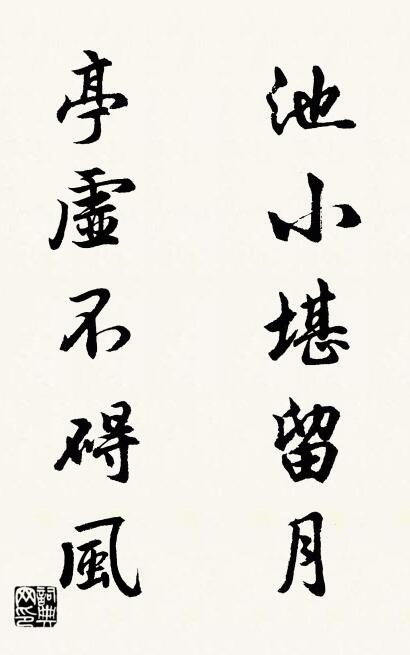 池小堪留月
亭虛不碍風
詞典網印